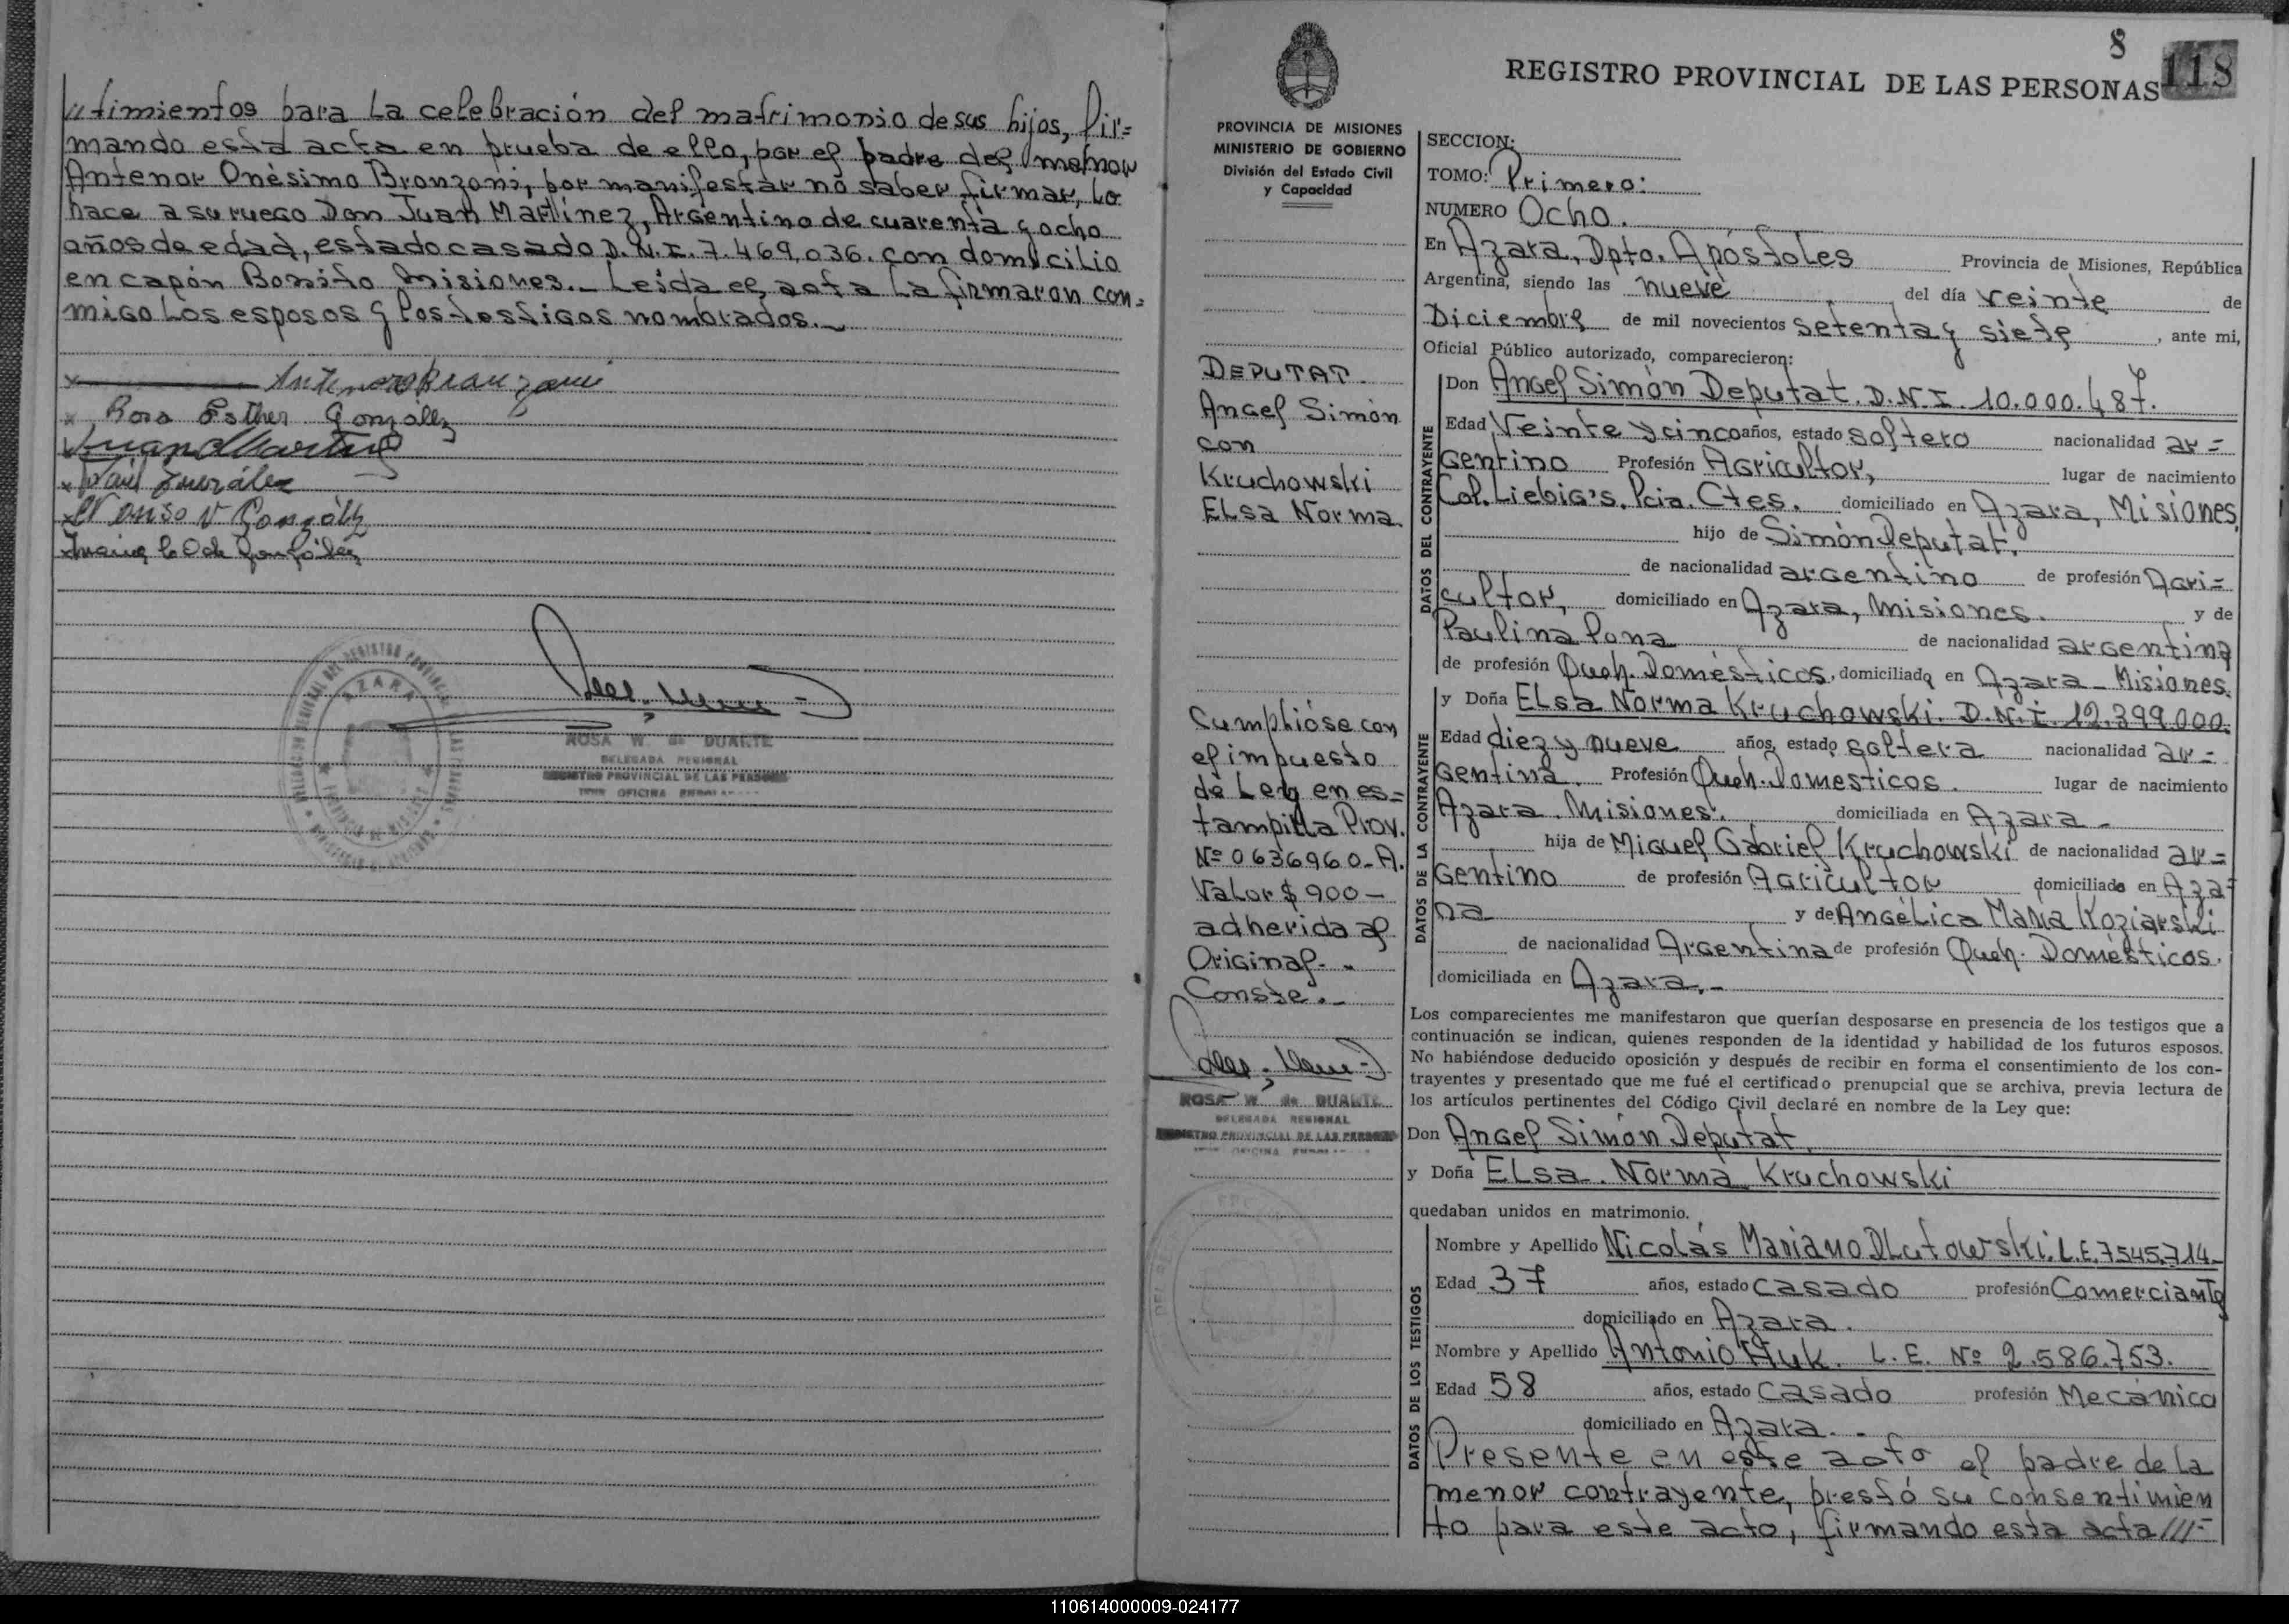 timientos para la celebración del matrimonio de sus hijos, fir=
mando esta acta en prueba de ello, por el padre del menor
Antenor Onésimo Bronzoni, por manifestar no saber firmar, lo
hace a su ruego Don Juan Martinez, Argentino de cuarenta y ocho
años de edad, estado casado D.N.I. 7.469.036. con domicilio
en capón Bonito Misiones._ Leida el acta la firmaron con=
migo los esposos y los testigos nombrados._
Rosa Esther González
AZARA
ROSA W. de DUARTE
DELEGADA REGIONAL
REGISTRO PROVINCIAL DE LAS PERSONAS
8
118
REGISTRO PROVINCIAL DE LAS PERSONAS
PROVINCIA DE MISIONES
MINISTERIO DE GOBIERNO
División del Estado Civil
y Capacidad
DEPUTAT
Angel Simón
con
Kruchowski
Elsa Norma
Cumplióse con
el impuesto
de Ley en es=
tampilla Prov.
Nº 0636960-A.
Valor $ 900-
adherida al
Original.-
Conste._
ROSA W. de DUARTE
DELEGADA REGIONAL
REGISTRO PROVINCIAL DE LAS PERSONAS
SECCION:
TOMO: Primero:
NUMERO Ocho.
En Azara, Dpto. Apóstoles Provincia de Misiones, República
Argentina, siendo las nueve del día veinte de
Diciembre de mil novecientos setenta y siete, ante mi,
Oficial Público autorizado, comparecieron:
DATOS DEL CONTRAYENTE
Don Angel Simón Deputat. D.N.I. 10.000.487.
Edad Veinte y cinco años, estado soltero nacionalidad ar=
gentino Profesión Agricultor, lugar de nacimiento
Col. Liebig's. Pcia. Ctes. domiciliado en Azara, Misiones,
hijo de Simón Deputat,
de nacionalidad argentino de profesión Agri=
cultor, domiciliado en Azara, Misiones. y de
Paulina Pona de nacionalidad argentina
de profesión Queh. Domésticos, domiciliada en Azara - Misiones.
DATOS DE LA CONTRAYENTE
y Doña Elsa Norma Kruchowski. D.N.I. 12.399.000.
Edad diez y nueve años, estado soltera nacionalidad ar=
gentina. Profesión Queh. Domesticos. lugar de nacimiento
Azara. Misiones. domiciliada en Azara -
hija de Miguel Gabriel Kruchowski de nacionalidad ar=
gentino de profesión Agricultor domiciliado en Aza=
ra y de Angélica María Koziarski
de nacionalidad Argentina de profesión Queh. Domésticos.
domiciliada en Azara.-
Los comparecientes me manifestaron que querían desposarse en presencia de los testigos que a
continuación se indican, quienes responden de la identidad y habilidad de los futuros esposos.
No habiéndose deducido oposición y después de recibir en forma el consentimiento de los con-
trayentes y presentado que me fué el certificado prenupcial que se archiva, previa lectura de
los artículos pertinentes del Código Civil declaré en nombre de la Ley que:
Don Angel Simón Deputat,
y Doña Elsa. Norma Kruchowski
quedaban unidos en matrimonio.
DATOS DE LOS TESTIGOS
Nombre y Apellido Nicolás Mariano Dlutowski. L.E. 7545.714-
Edad 37 años, estado casado profesión Comerciante
domiciliado en Azara.
Nombre y Apellido Antonio Huk. L.E. Nº 2.586.753.
Edad 58 años, estado casado profesión Mecánico
domiciliado en Azara. -
Presente en este acto el padre de la
menor contrayente, prestó su consentimien
to para este acto, firmando esta acta///=
110614000009-024177